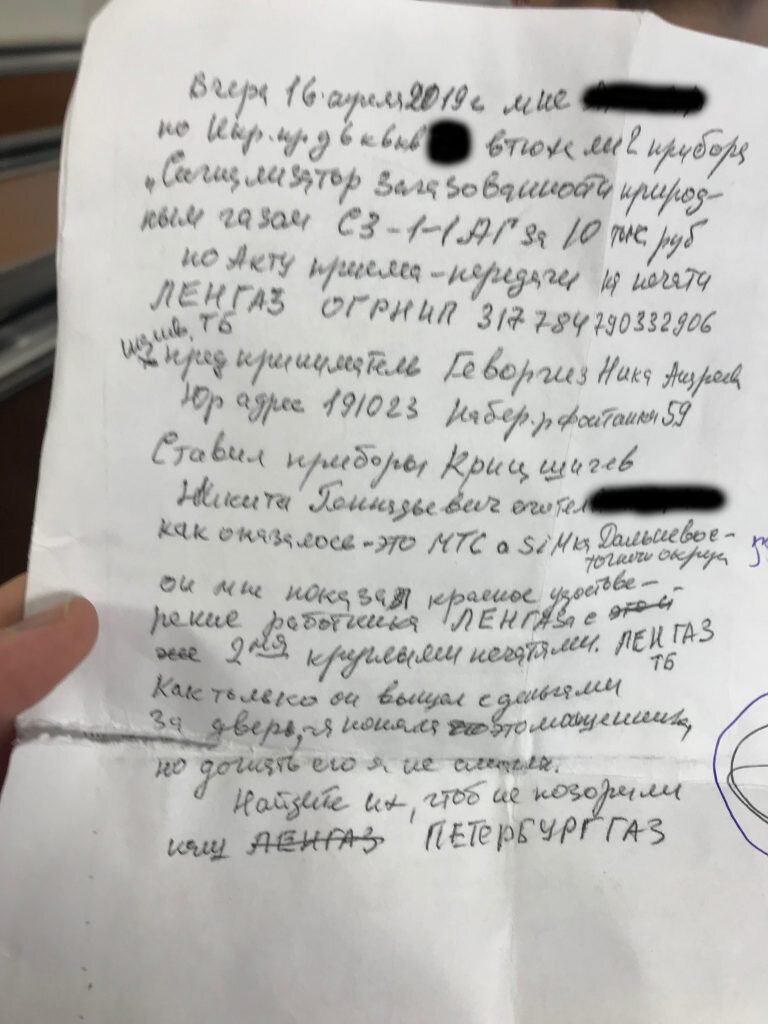 Вчера 16 апреля 2019г мне
по Кир. пр. д 6 кв кв втюхали 2 прибора
"Сигнализатор загазованности природ-
ным газом СЗ-1-1АГ за 10 тыс руб
по Акту приема-передачи на печати
ЛЕНГАЗ ОГРНИП 317784790332906
ТБ
предприниматель Геворгиз Ника Андреев
Юр адрес 191023 Набер. р Фонтанки 59
Ставил приборы Крицшичев
Никита Геннадьевич его тел
как оказалось-это МТС а SiMка Дальневос-
точного округа
он мне показал красное удостове-
рение работника ЛЕНГАЗа с
2мя круглыми печатями. ЛЕНГАЗ
ТБ
Как только он вышел с деньгами
за дверь,-я поняла это мошенники,
но догнать его я не смогла.
Найдите их, чтоб не позорили
нашу ЛЕНГАЗ ПЕТЕРБУРГГАЗ